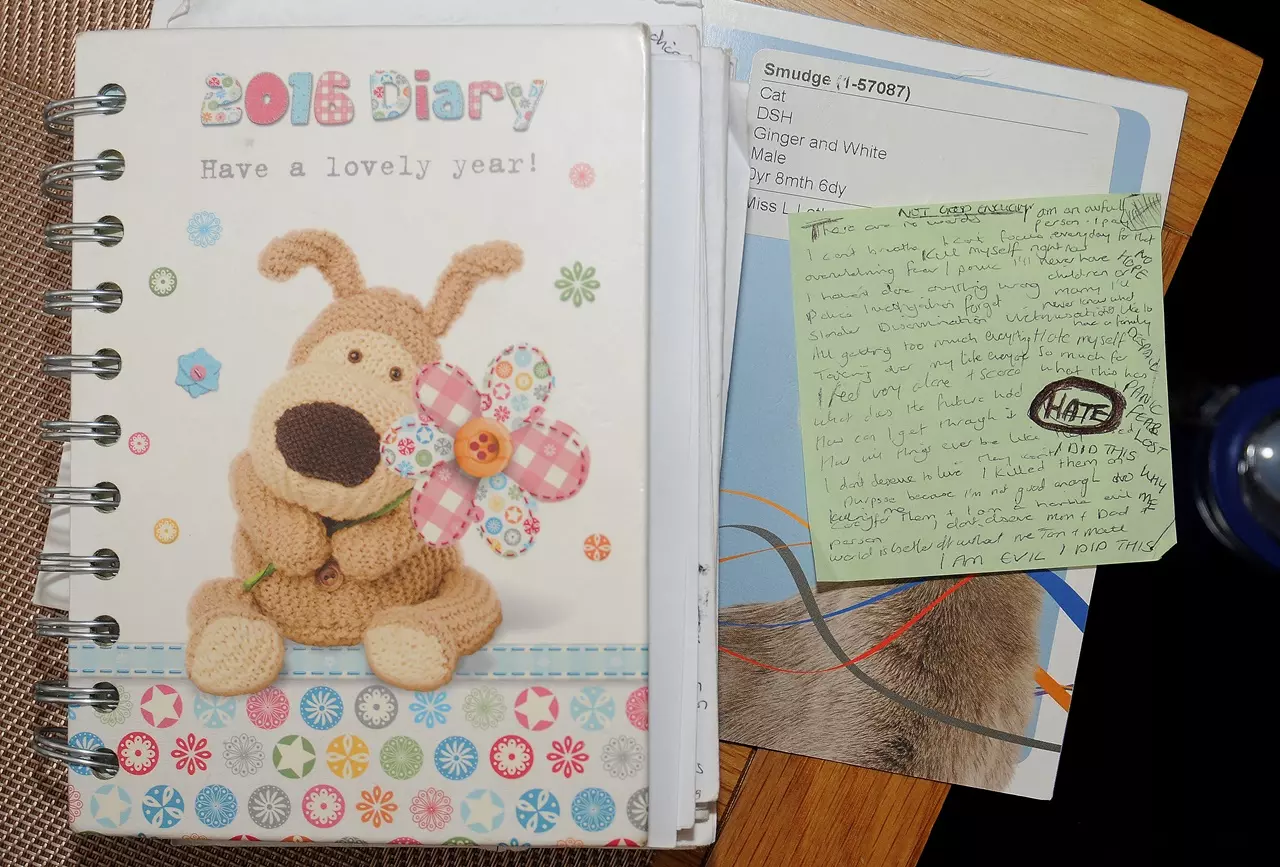 2016 Diary
Have a lovely year!
Smudge (1-57087)
Cat
DSH
Ginger and White
Male
0yr 8mth 6dy
Miss L
NOT GOOD ENOUGH
There are no words
I am an awful person I pay
I can't breathe
focus everyday for that
Kill myself right now
overwhelming fear / panic I'll never have
NO HOPE
children or
I haven't done anything wrong
marry I'll
Police investigation forget
never know what
Slander Discrimination Victimisation
like to have a family
All getting too much everything
Hate myself
DESPAIR
Taking over my life everyday
so much for
I feel very alone + scared
what this has
what does the future hold
PANIC
How can I get through it
FEAR
HATE
How will things ever be like
LOST
I DID THIS
I don't deserve to live
I killed them on
purpose because I'm not good enough
WHY ME
care for them + I am a horrible evil
person
I don't deserve Mum + Dad +
world is better off without me
I AM EVIL I DID THIS